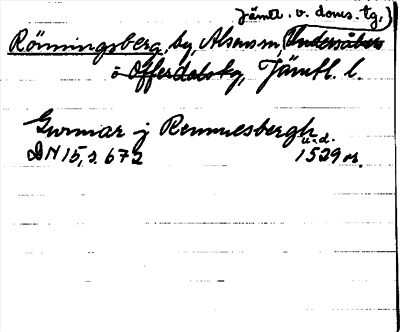 Jämtl. v. doms. tg.)
Rönningsberg, by, Alsens sn, Undersåkers
o Offerdals tg, Jämtl. l.
Gunnar j Rennnesbergh
u.d.
DN 15, s. 672 1529 or.